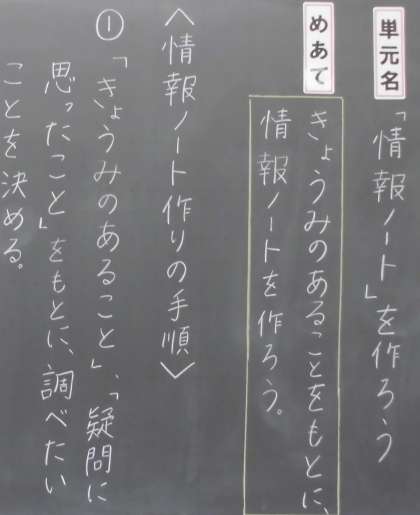 単元名
「情報ノート」を作ろう
めあて
きょうみのあることをもとに、
情報ノートを作ろう。
〈情報ノート作りの手順〉
①「きょうみのあること」、「疑問に
思ったこと」をもとに、調べたい
ことを決める。